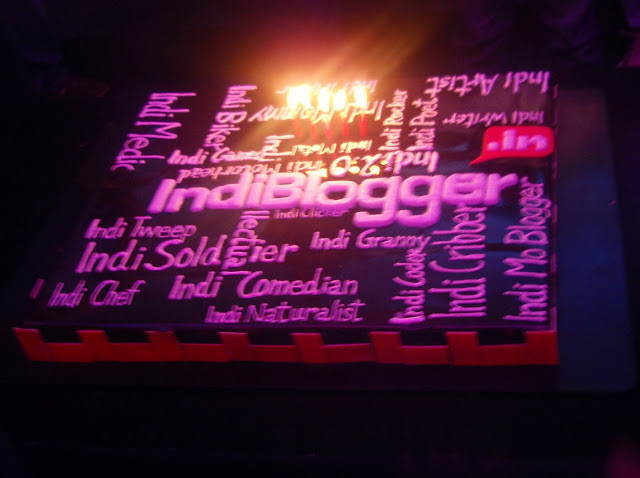 Indi Artist
Indi Medic
Indi Biker
Indi Mommy
Indi Rocker
Indi Poet
Indi Writer
Indi Metal
Indi Motorhead
.in
IndiBlogger
Indi Clicker
Indi Tweep
Indi Soldier
Indi Granny
Indi Coder
Indi Cribber
Indi Mo Blogger
Indi Chef
Indi Comedian
Indi Naturalist